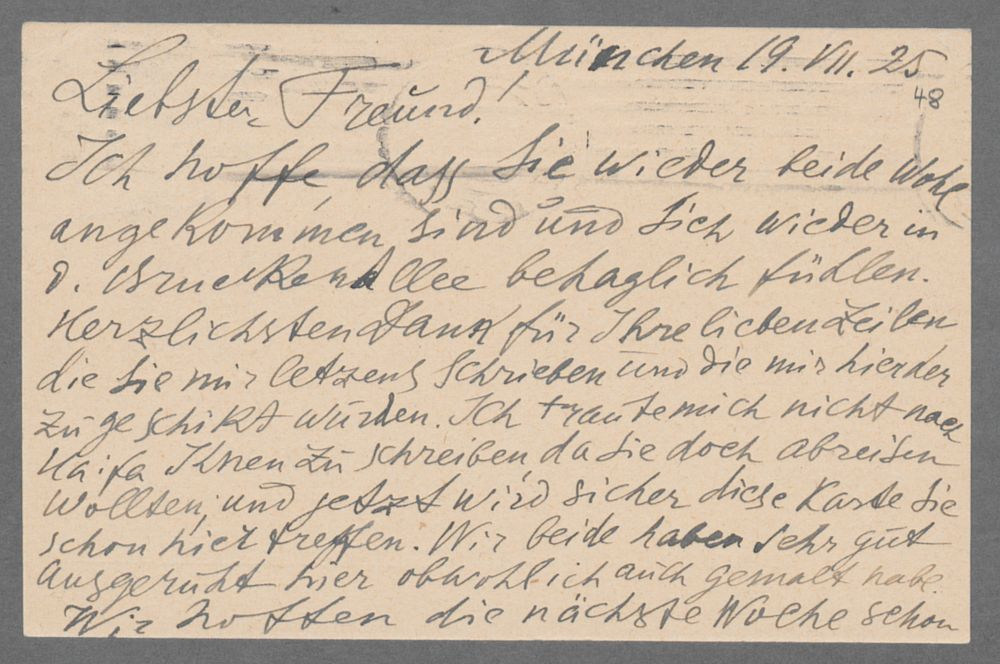 München 19. VII. 25
48
Liebster Freund!
Ich hoffe, dass Sie wieder beide wohl
angekommen sind und sich wieder in
d. Bruckenallee behaglich fühlen.
Herzlichsten Dank für Ihre lieben Zeilen
die Sie mir letzens schrieben und die mir hierher
zugeschikt wurden. Ich traute mich nicht nach
Haifa Ihnen zu schreiben da Sie doch abreisen
wollten, und jetzt wird sicher diese Karte Sie
schon hier treffen. Wir beide haben sehr gut
ausgeruht hier obwohl ich auch gemalt habe.
Wir hoffen die nächste Woche schon